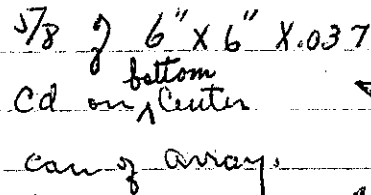 5/8 of 6" X 6" X .037
Cd on bottom Center
can of array.